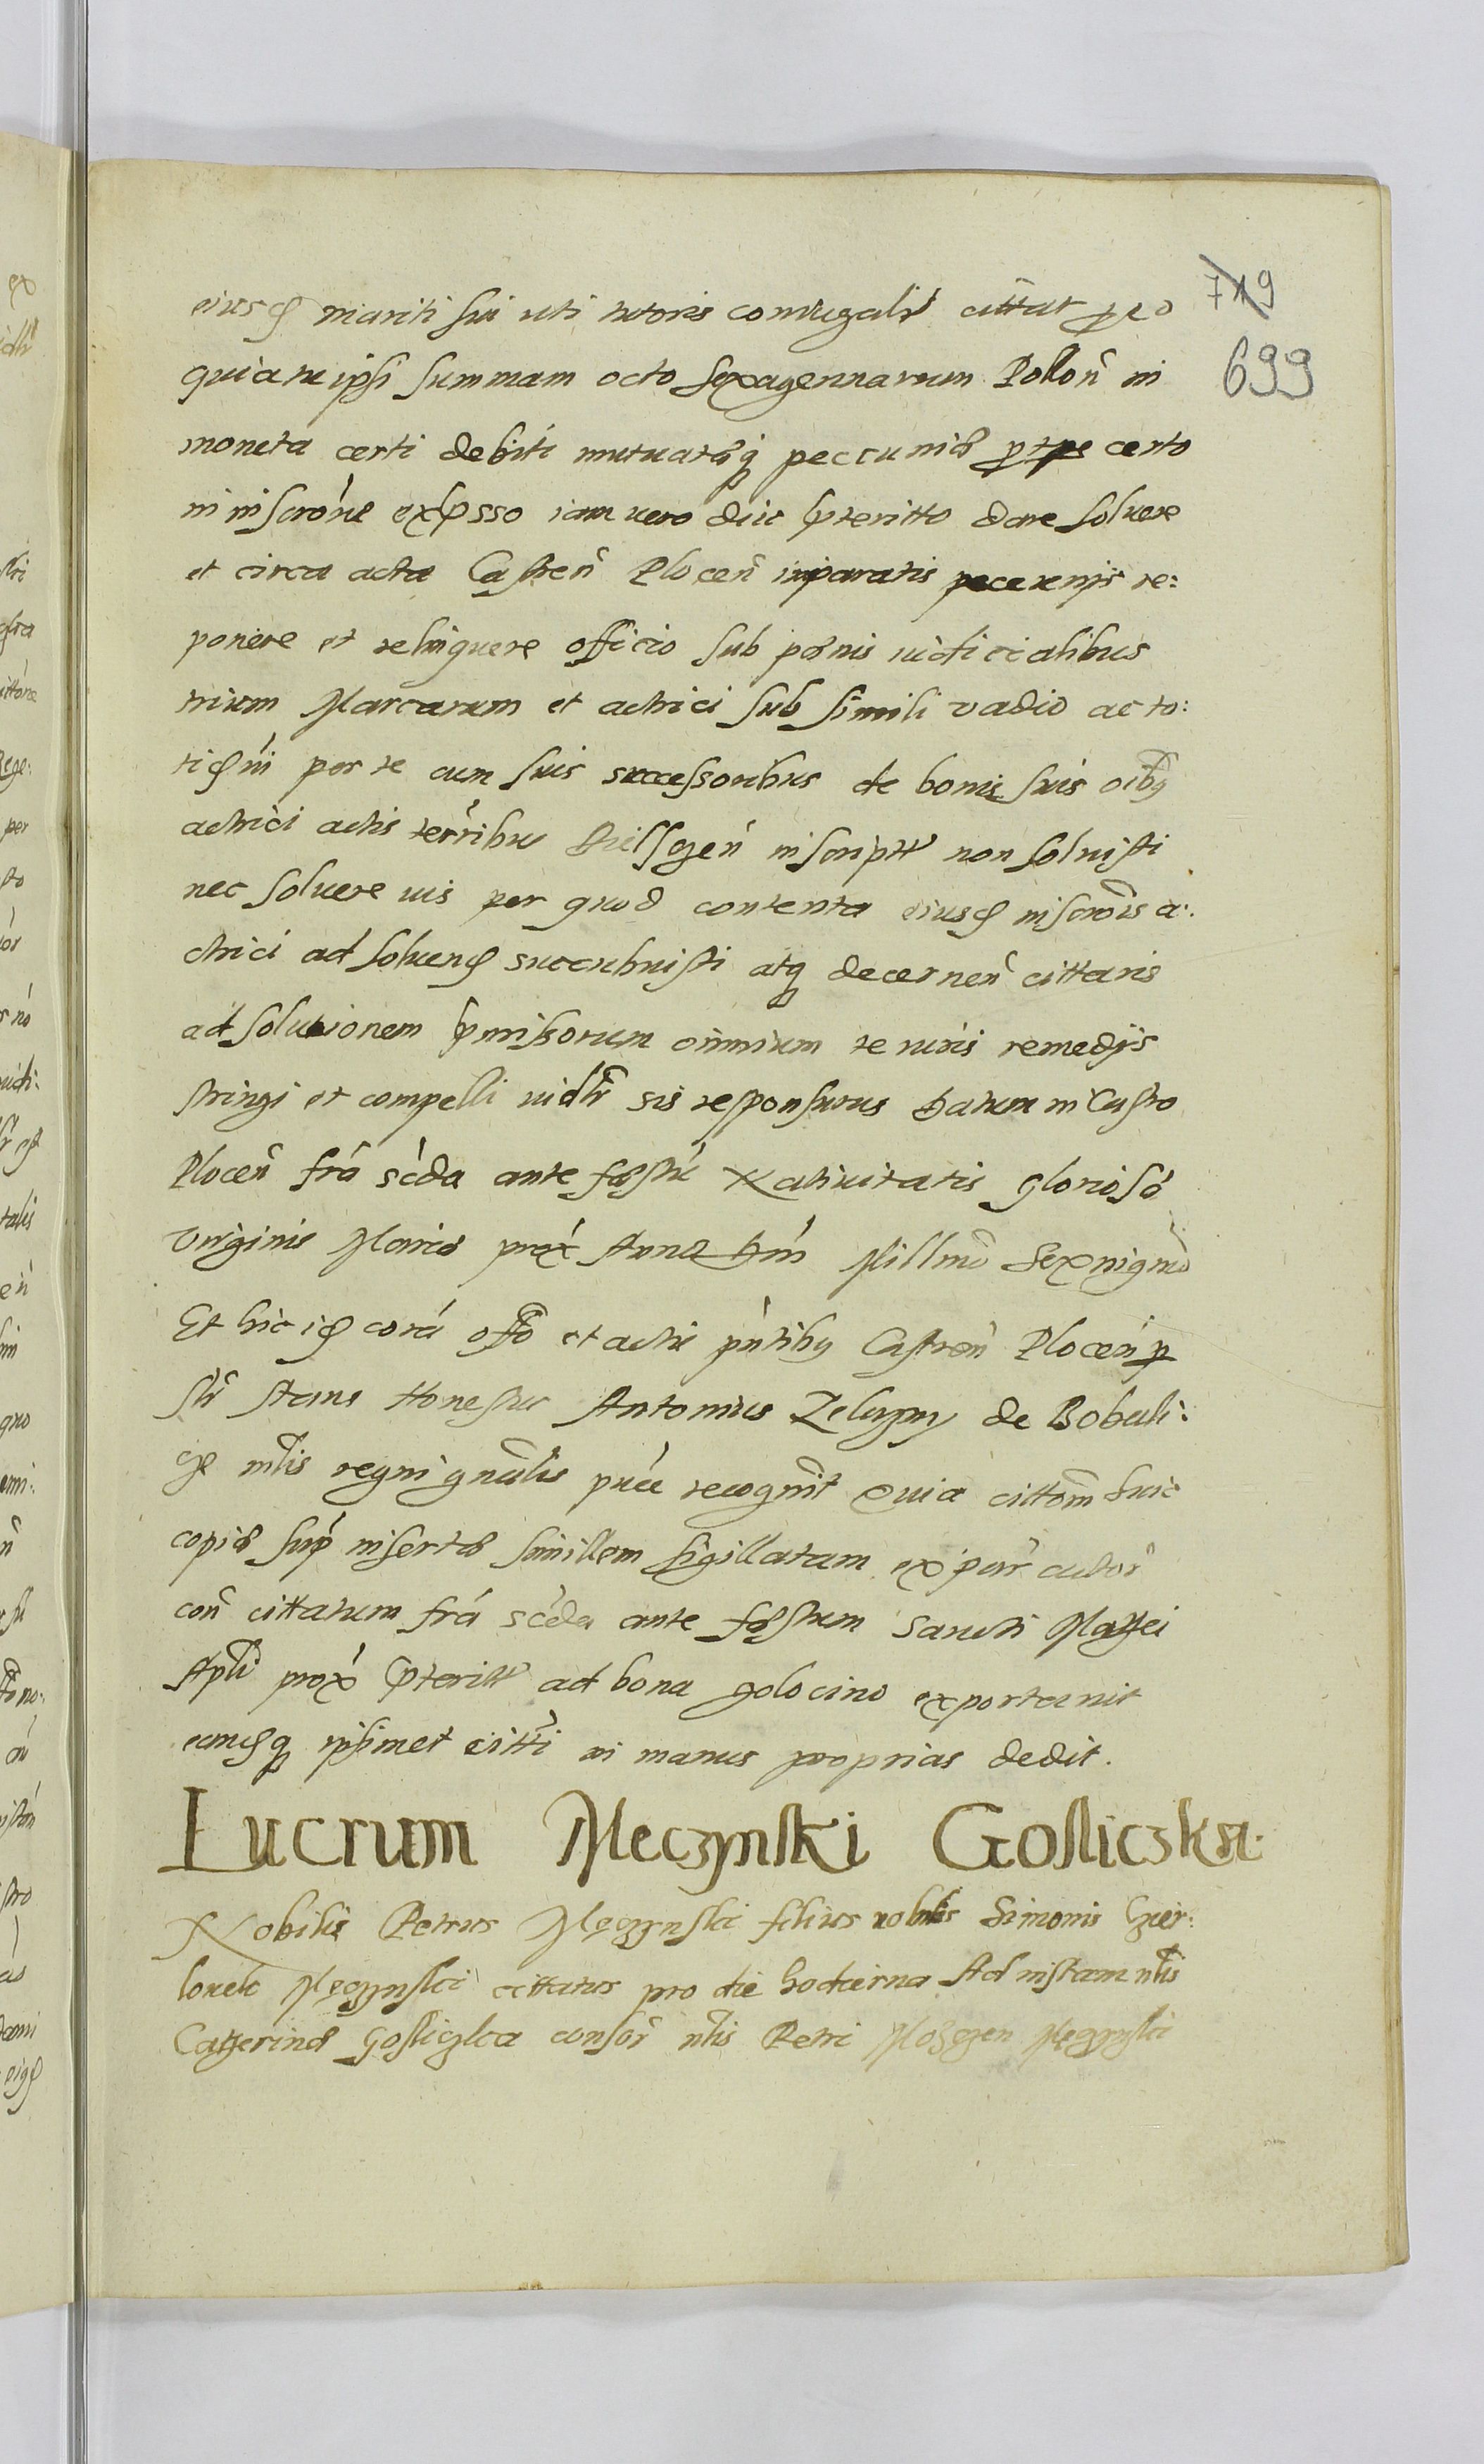 719
699
eiusd mariti sui uti tutoris coniugalis cittat pro eo
quia tu ipsi summam octo sexagennarum Pollon̄ in
moneta certi debiti mutuatæq peccuniæ p tpe certo
in inscrōne exp̄sso iam vero diu p̄teritto dare soluere
et circa acta Castren̄ Plocen̄ in paratis peccunijs re:
ponere et relinquere officio sub pœnis iudicialibus
trium Marcarum et actrici sub simili vadio ac to:
tid in per te cum suis successoribus de bonis suis oibq
actrici actis terribus inscriptt non soluisti
nec soluere vis per quod contenta eiusd inscrōis a:
ctrici ad soluend succubuisti atq decernen̄ cittaris
ad solutionem p̄missorum omnium te iuris remedijs
stringi et compelli vidlr sis responsurus Datum in Castro
Plocen̄ frá scda ante fæstū Natiuitatis gloriosæ
Virginis Mariæ prox Anno Dni Millmo Sexnigmo
Et hic id corā offo et actis pntibq Castren̄ Plocen̄ p
slr stans Honestus Antonius Zelazny de Bobuli:
mtis regni gnalis pūce recognit Quia cittōm huic
copiæ sup insertæ simillem sigillatam ex par actor
con cittatum frá scda ante fæstum Sancti Mattei
Apli prox p̄teritt ad bona golocino exportauit
eamdq ipsimet citti in manus proprias dedit.
Lucrum Meczynski Gosliczka.
Nobilis Petrus Męczynski filius nobilis Simonis
Męczynski cittatus pro die hodierna Ad instam nlis
Catzerinæ Gosliczka consor nlis Petri Męczynski